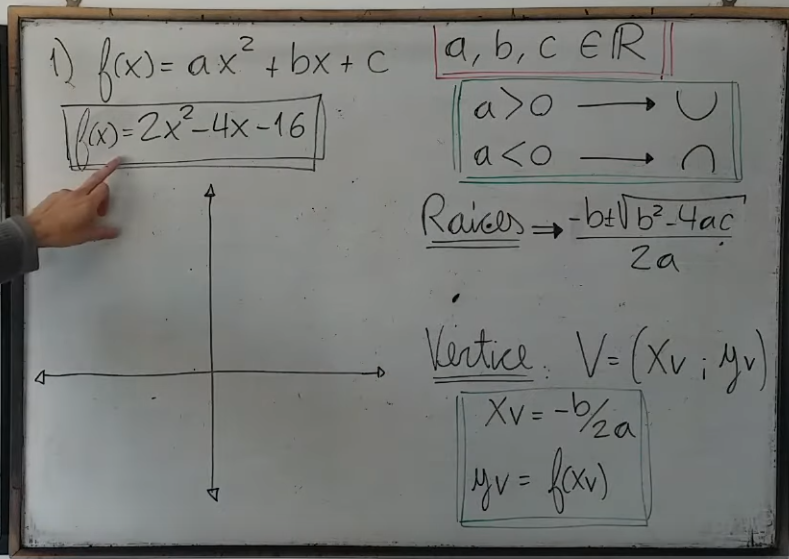 1) f(x) = ax² + bx + c
f(x) = 2x² - 4x - 16
a, b, c ∈ ℝ
a > 0 → ∪
a < 0 → ∩
Raices ⇒ -b±√b² - 4ac
2a
Vértice: V = (Xv ; yv)
Xv = -b/2a
yv = f(xv)